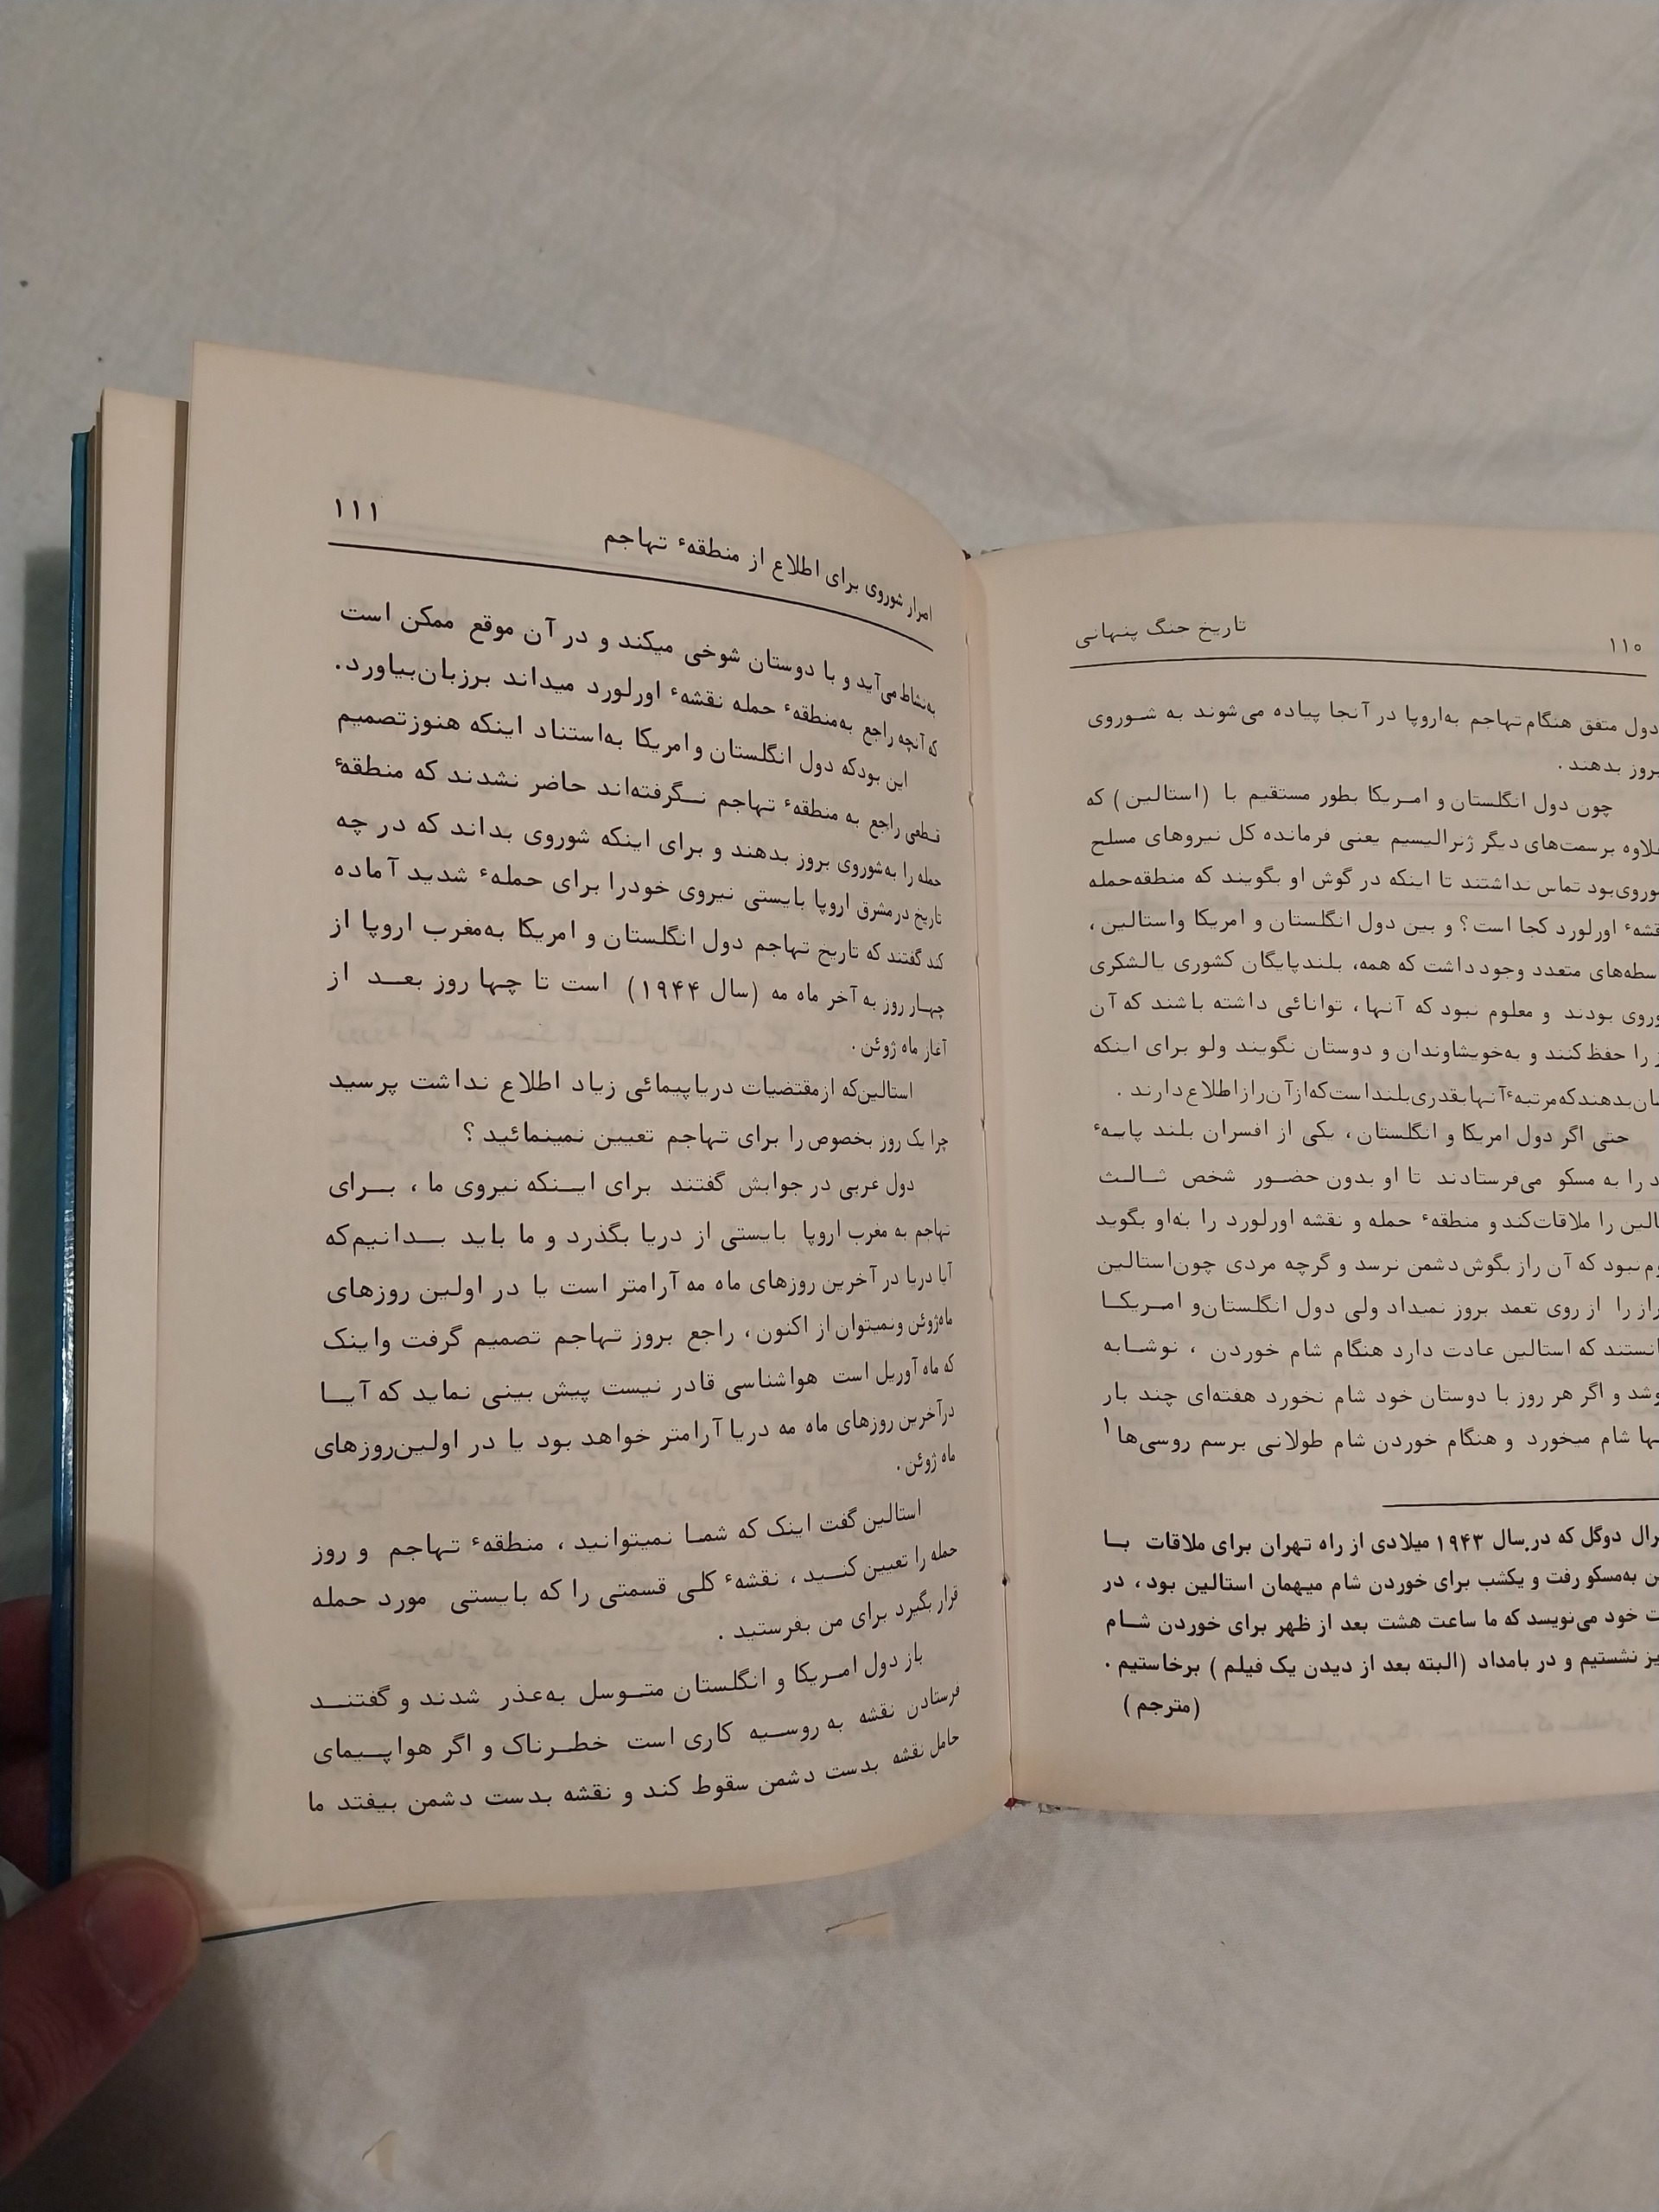 ۱۱۰
تاریخ جنگ پنهانی
دول متفق هنگام تهاجم به‌اروپا در آنجا پیاده می‌شوند به شـوروی
بروز بدهند .
چون دول انگلستان و امـریکا بطور مستقیم با (استالین) که
علاوه برسمت‌های دیگر ژنرالیسیم یعنی فرمانده کل نیروهای مسلح
بود تماس نداشتند تا اینکه در گوش او بگویند که منطقه حمله
اورلورد کجا است؟ و بین دول انگلستان و امریکا واستالین ،
متعدد وجود داشت که همه، بلندپایگان کشوری یالشکری
بودند و معلوم نبود که آنها، توانائی داشته باشند که آن
را حفظ کنند و به‌خویشاوندان و دوستان نگویند ولو برای اینکه
بدهند که مرتبهٔ آنها بقدری بلند است که از آن راز اطلاع دارند .
حتی اگر دول امریکا و انگلستان، یکی از افسران بلند پایـهٔ
را به مسکو می‌فرستادند تا او بدون حضـور شخص ثـالـث
را ملاقات کند و منطقهٔ حمله و نقشه اورلورد را به‌او بگوید
نبود که آن راز بگوش دشمن نرسد و گرچه مردی چون استالین
را از روی تعمد بروز نمیداد ولی دول انگلستان و امـریکـا
که استالین عادت دارد هنگام شام خوردن ، نوشـابه
و اگر هر روز با دوستان خود شام نخورد هفته‌ای چند بار
شام میخورد و هنگام خوردن شام طولانی برسم روسی‌ها ۱
دوگل که در سال ۱۹۴۳ میلادی از راه تهران برای ملاقات بـا
به‌مسکو رفت و یکشب برای خوردن شام میهمان استالین بود ، در
خود می‌نویسد که ما ساعت هشت بعد از ظهر برای خوردن شـام
نشستیم و در بامداد (البته بعد از دیدن یک فیلم ) برخاستیم .
(مترجم )
امرار شوروی برای اطلاع از منطقهٔ تهاجم
۱۱۱
به‌نشاط می‌آید و با دوستان شوخی میکند و در آن موقع ممکن است
که آنچه راجع به‌منطقهٔ حمله نقشهٔ اورلورد میداند برزبان‌بیاورد.
این بودکه دول انگلستان و امریکا به‌استناد اینکه هنوز تصمیم
قـطعی راجع به منطقهٔ تهاجم نـگرفته‌اند حاضر نشدند که منطقهٔ
حمله را به‌شوروی بروز بدهند و برای اینکه شوروی بداند که در چه
تاریخ در مشرق اروپا بایستی نیروی خودرا برای حملهٔ شدید آماده
کند گفتند که تاریخ تهاجم دول انگلستان و امریکا به‌مغرب اروپا از
چهـار روز به آخر ماه مه (سال ۱۹۴۴) است تا چهـا روز بعـد از
آغاز ماه ژوئن .
استالین‌که از مقتضیات دریاپیمائی زیاد اطلاع نداشت پرسید
چرا یک روز بخصوص را برای تهاجم تعیین نمینمائید ؟
دول غربی در جوابش گفتند برای ایـنکه نیروی ما ، بـرای
تهاجم به مغرب اروپا بایستی از دریا بگذرد و ما باید بـدانیم‌که
آیا دریا در آخرین روزهای ماه مه آرامتر است یا در اولین روزهای
ماه‌ژوئن و نمیتوان از اکنون، راجع بروز تهاجم تصمیم گرفت واینک
که ماه آوریل است هواشناسی قادر نیست پیش بینی نماید که آیـا
درآخرین روزهای ماه مه دریا آرامتر خواهد بود یا در اولین‌روزهای
ماه ژوئن.
استالین گفت اینک که شمـا نمیتوانید ، منطقهٔ تهاجم و روز
حمله را تعیین کنـید ، نقشهٔ کلی قسمتی را که بایستی مورد حمله
قرار بگیرد برای من بفرستید .
باز دول امـریکا و انگلستان متـوسل به‌عذر شدند و گفتنـد
فرستادن نقشه به روسـیه کاری است خطـرناک و اگر هواپـیمای
حامل نقشه بدست دشمن سقوط کند و نقشه بدست دشمن بیفتد ما